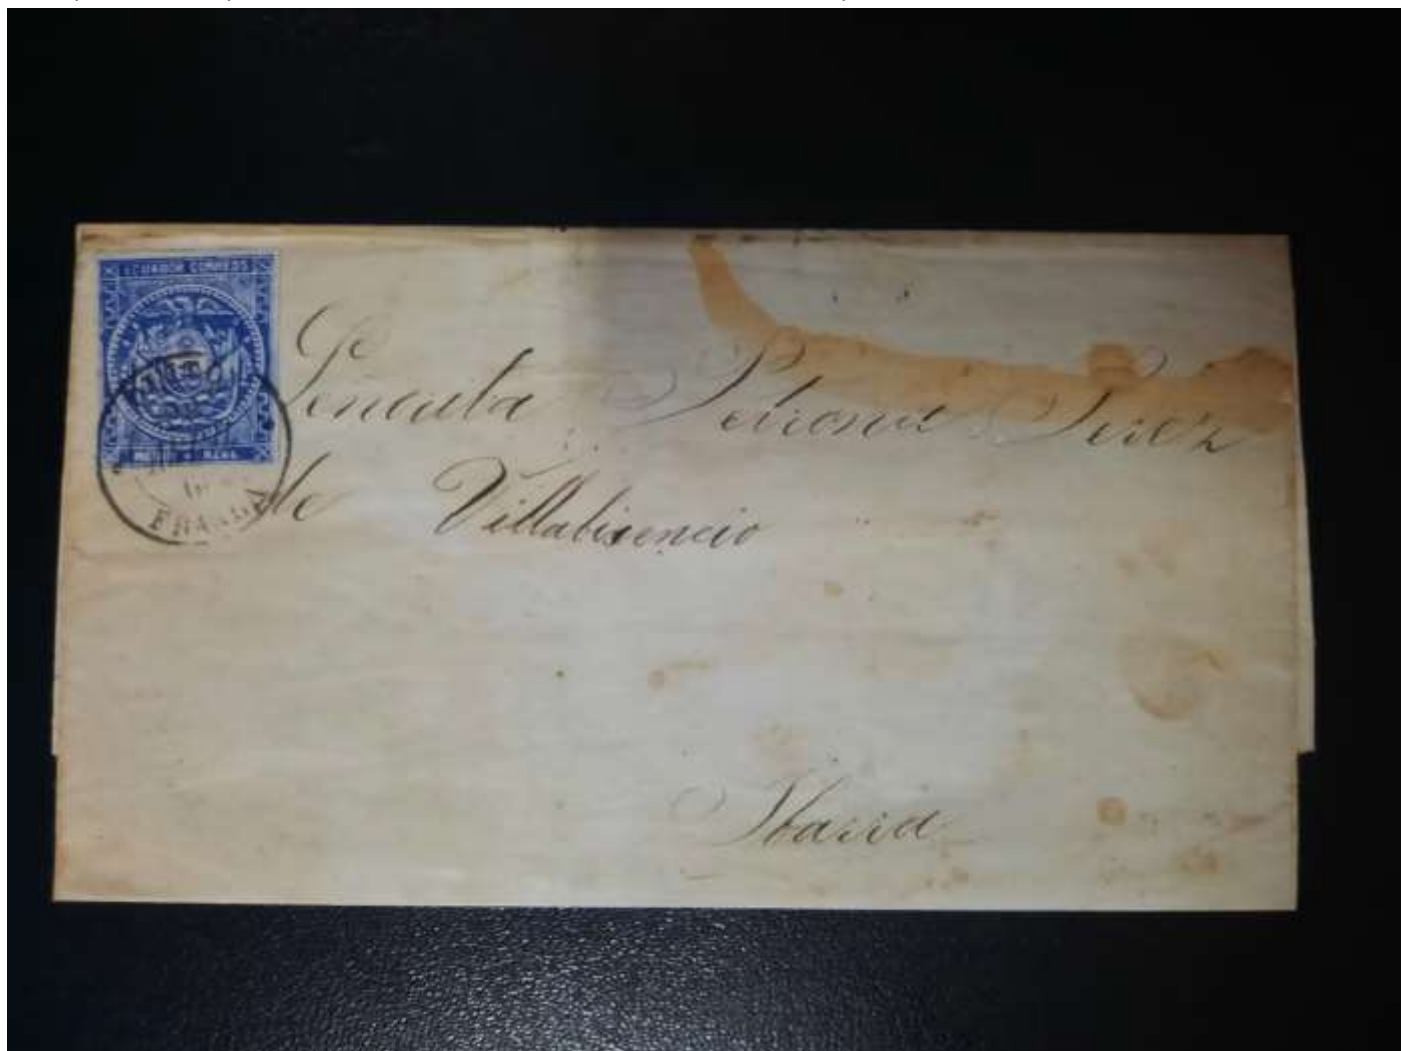 ECUADOR CORREOS
MEDIO REAL
QUITO
FRANCA
Señorita Petrona Perez
de Villabisencio
Ibarra